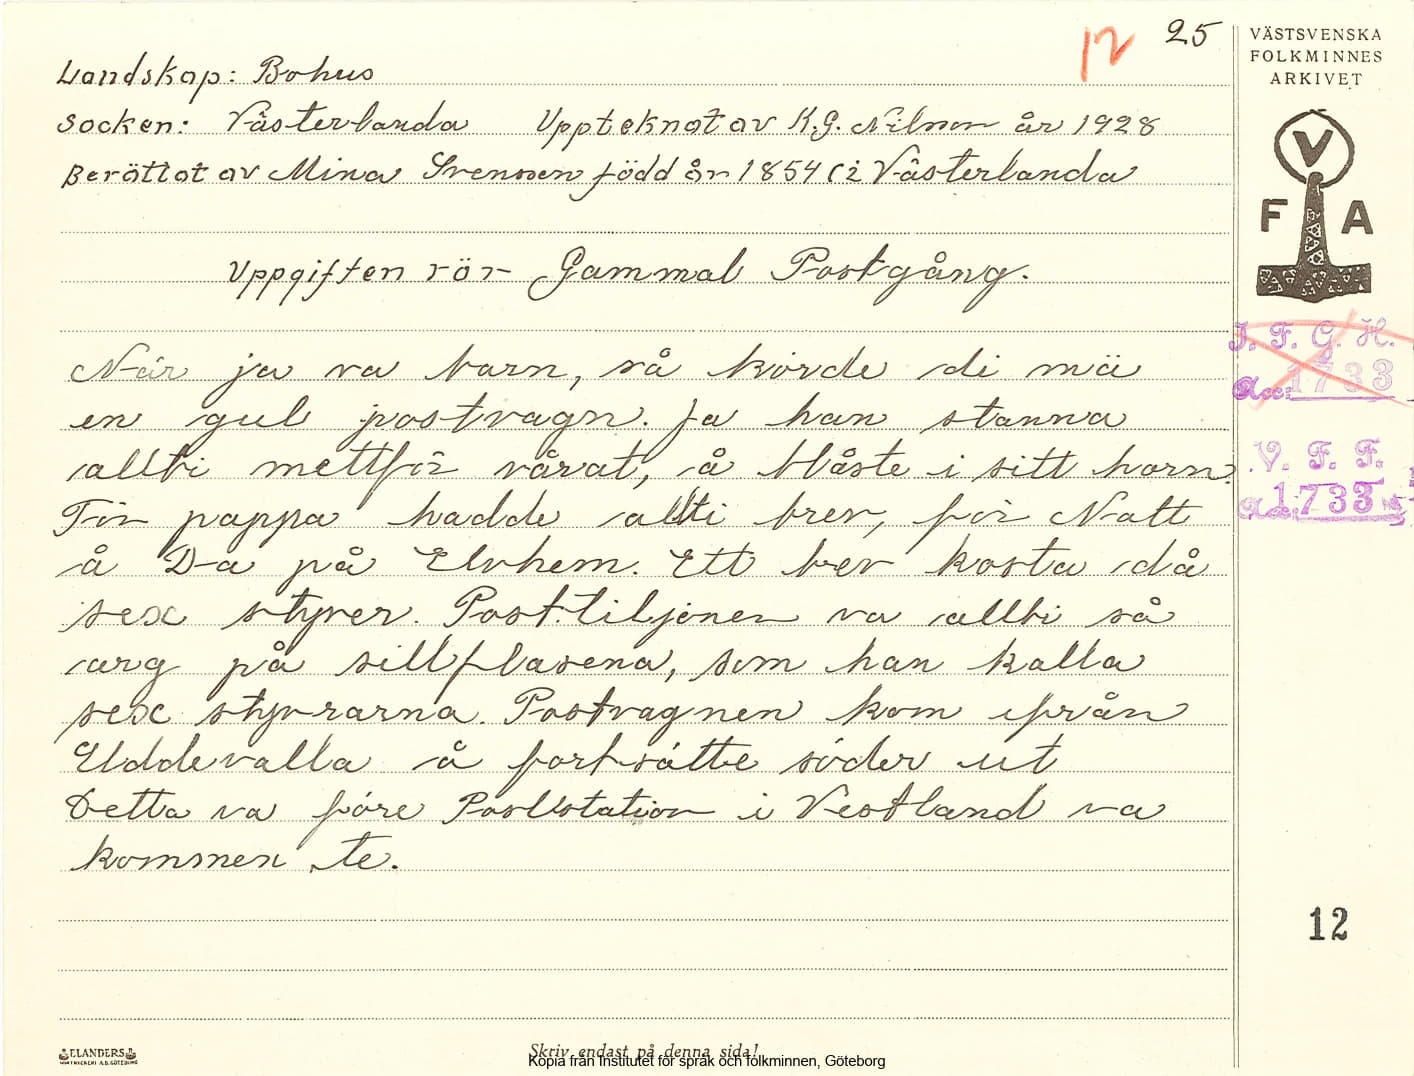 12 25
VÄSTSVENSKA
FOLKMINNES
ARKIVET
Landskap: Bohus
Socken: Västerlanda Upptecknat av K.G. Nilsson år 1928
Berättat av Mina Svensson född år 1854 i Västerlanda
V
F A
Uppgiften rör Gammal Postgång.
I. F. G. H.
1733
V. F. F.
1733
När ja va barn, så körde di mä
en gul postvagn. Ja han stanna
allti mettför vårat, å blåste i sitt horn.
För pappa hadde allti brev, för Natt
å Da på Elvhem. Ett brev kosta då
sex styver. Posttiljonen va allti så
arg på sillflasena, som han kalla
sex styvrarna. Postvagnen kom ifrån
Uddevalla å fortsätte söder ut
Detta va före Poststation i Vestland va
kommen te.
12
ELANDERS
Skriv endast på denna sida!
Kopia från Institutet för språk och folkminnen, Göteborg